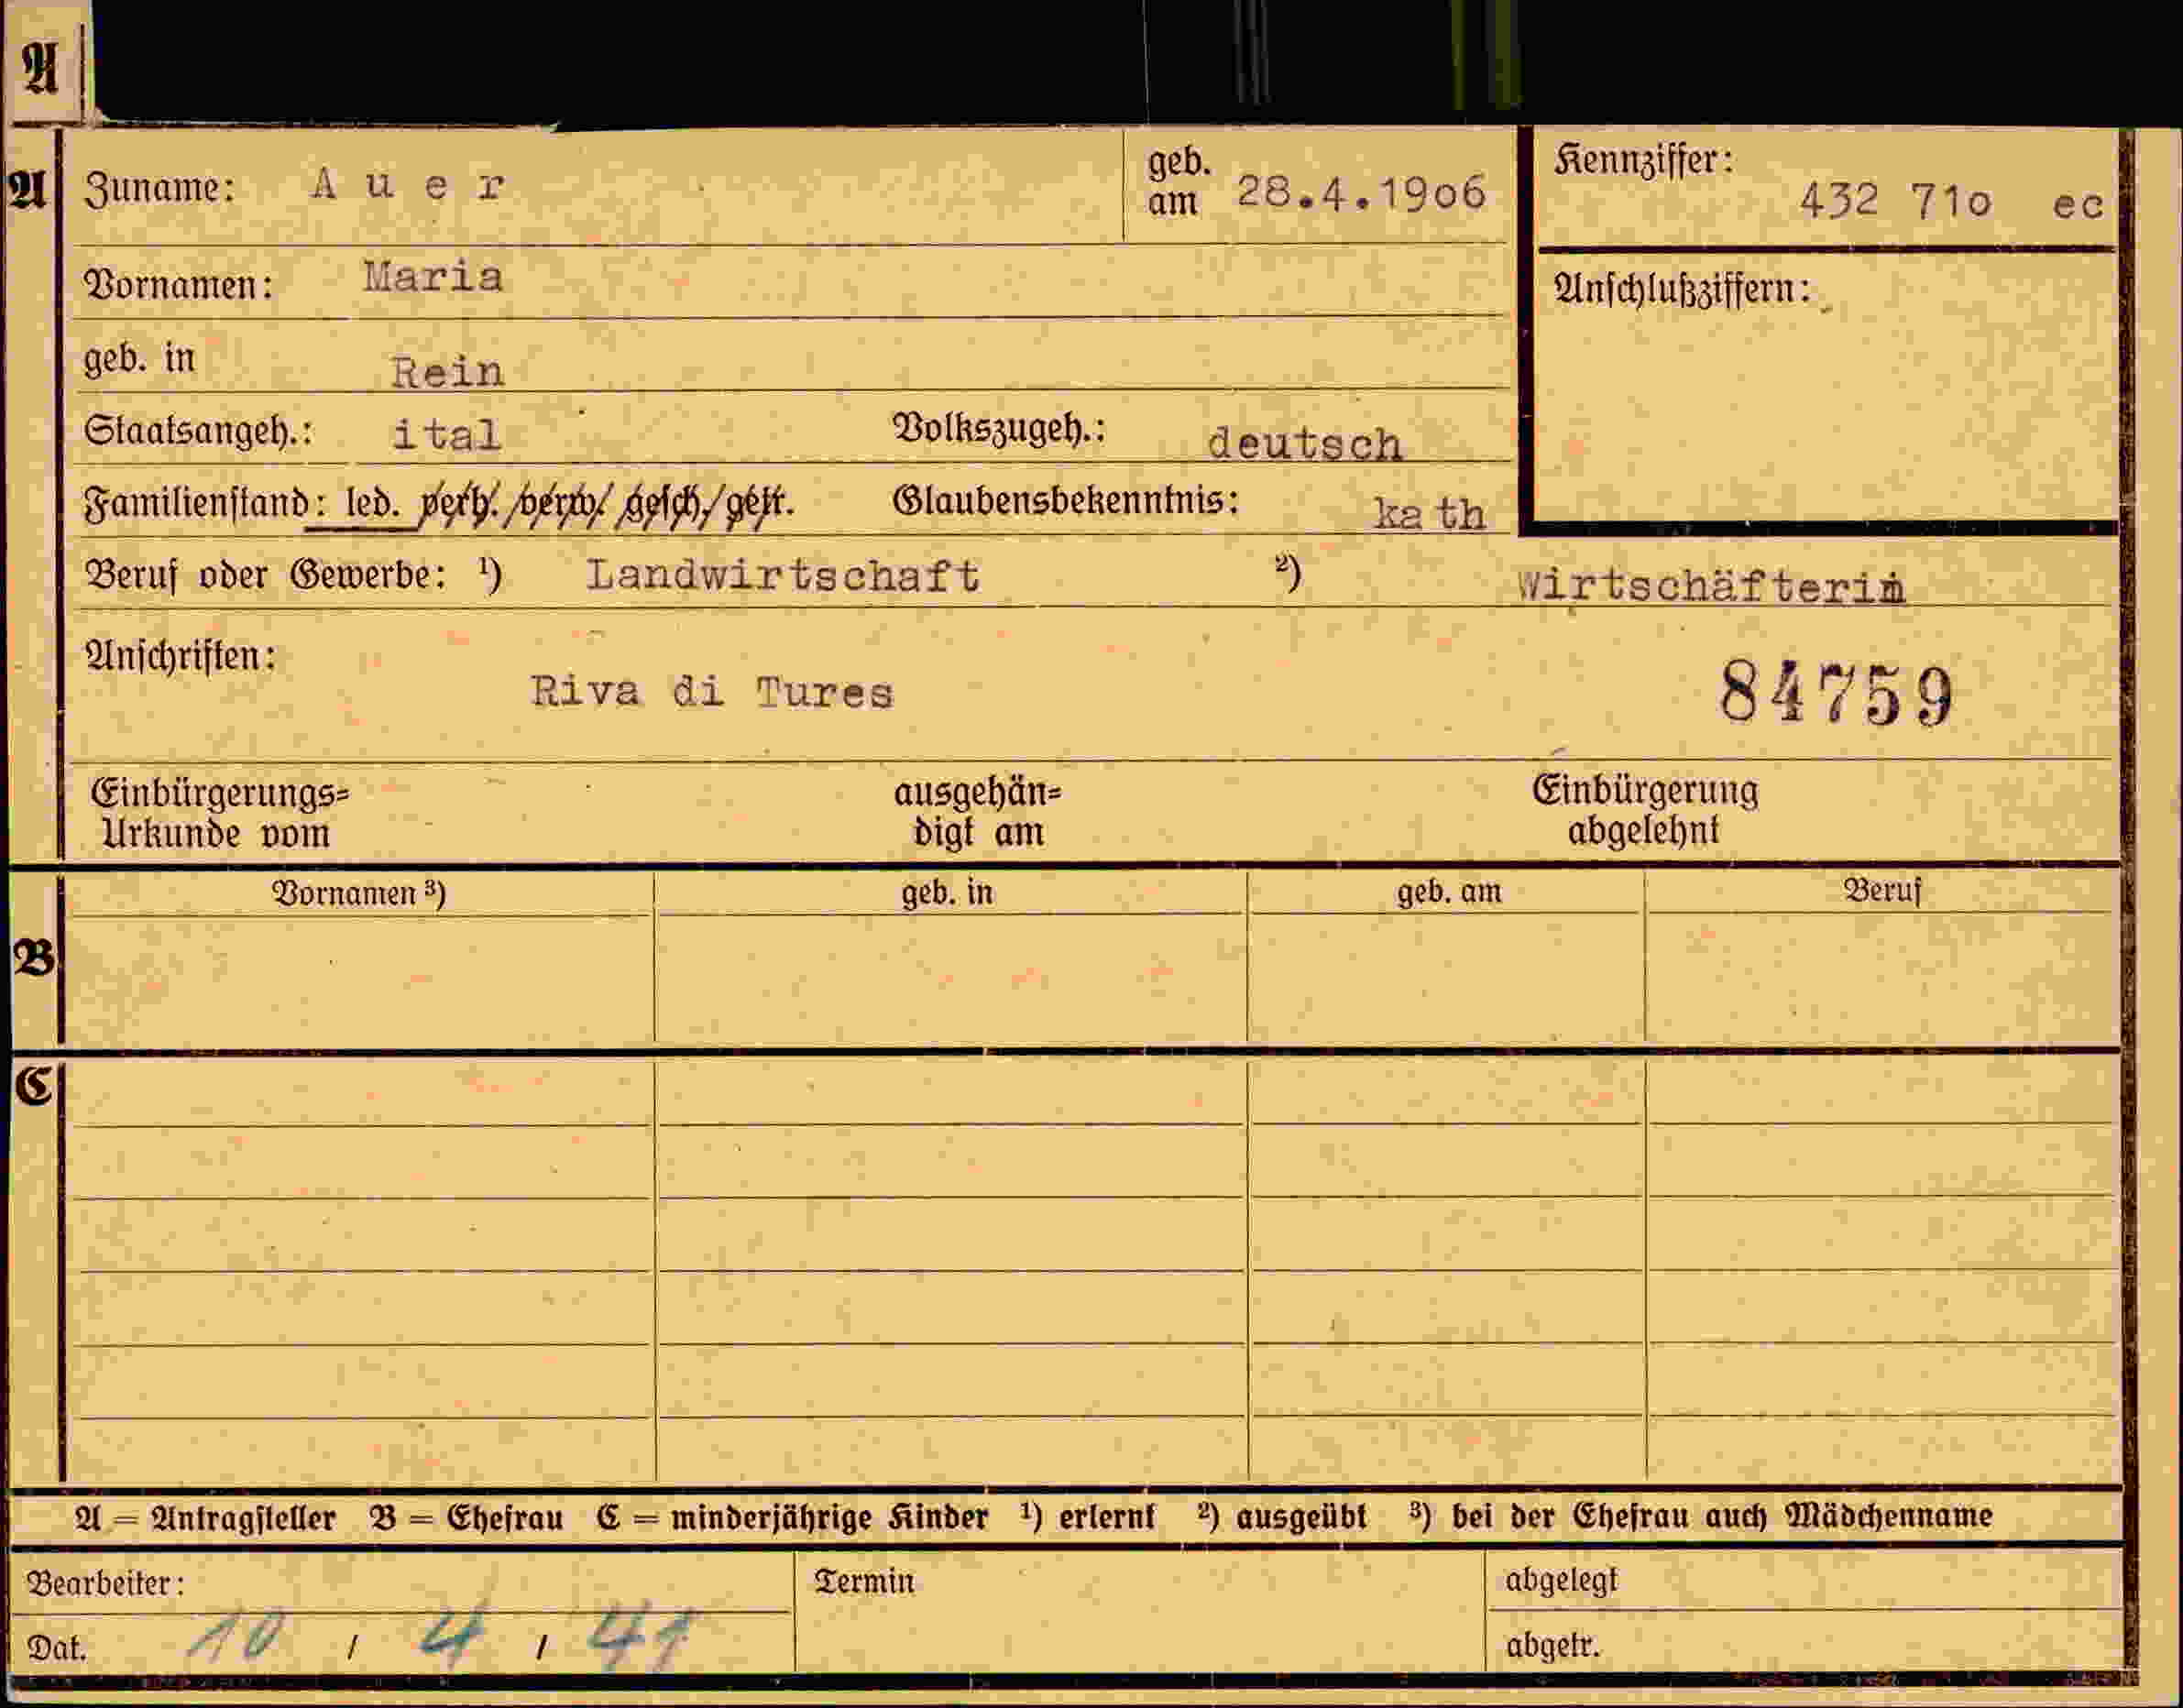 A
A Zuname: Auer geb. am 28.4.1906 Kennziffer: 432 710 ec
Vornamen: Maria Anschlußziffern:
geb. in Rein
Staatsangeh.: ital Volkszugeh.: deutsch
Familienstand: led. verh./verw./gesch./getr. Glaubensbekenntnis: kath
Beruf oder Gewerbe: ¹) Landwirtschaft ²) Wirtschäfterin
Anschriften:
Riva di Tures 84759
Einbürgerungs= ausgehän= Einbürgerung
Urkunde vom digt am abgelehnt
Vornamen ³) geb. in geb. am Beruf
B
C
A = Antragsteller B = Ehefrau C = minderjährige Kinder ¹) erlernt ²) ausgeübt ³) bei der Ehefrau auch Mädchenname
Bearbeiter: Termin abgelegt
Dat. 10 / 4 / 41 abgetr.